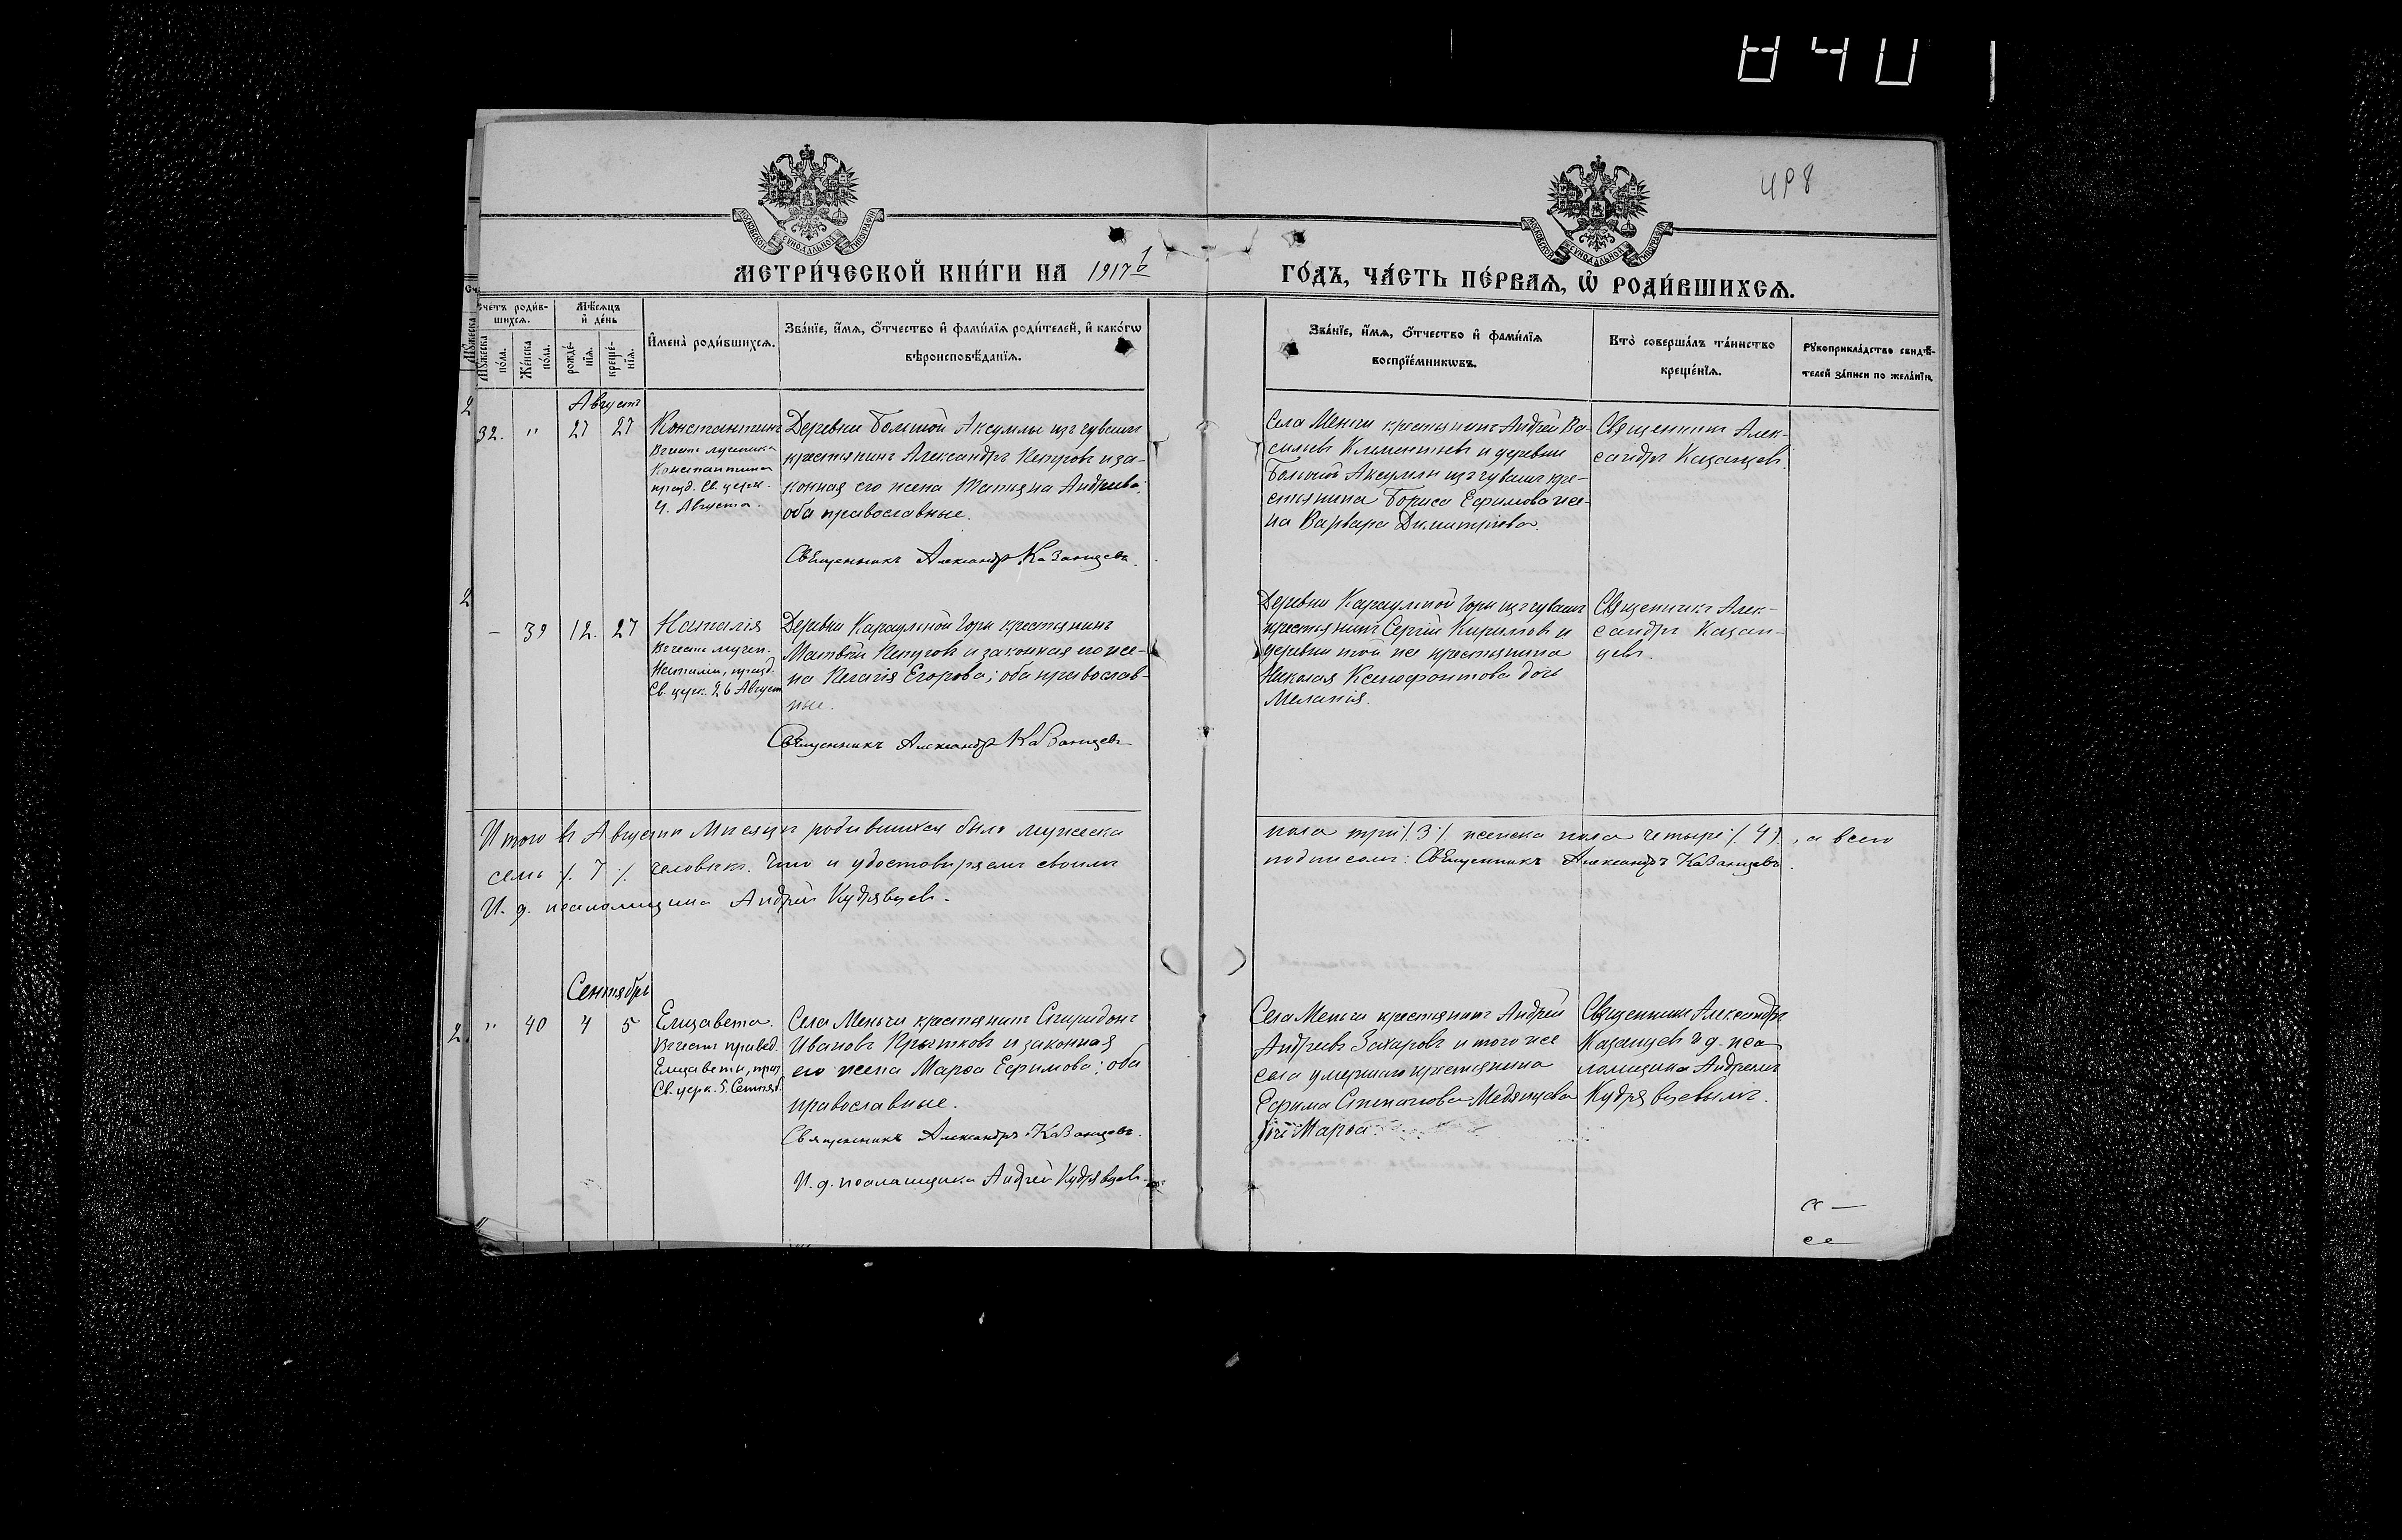 840
498
МОСКОВСКОЙ СѴНОДАЛЬНОЙ ТИПОГРАФІИ
МОСКОВСКОЙ СѴНОДАЛЬНОЙ ТИПОГРАФІИ
МЕТРИ́ЧЕСКОЙ КНИ́ГИ НА 1917 й
ГО́ДЪ, ЧА́СТЬ ПЕ́РВАѦ, Ѿ РОДИ́ВШИХСѦ.
Сче́тъ роди́в-
шихсѧ.
Мѣ́сѧцъ
и҆ де́нь
Мꙋ́жеска
по́ла.
Же́нска
по́ла.
рожде́-
нїѧ.
креще́-
нїѧ.
И҆мена̀ роди́вшихсѧ.
Зва́нїе, и҆́мѧ, ѻ҆́тчество и҆ фами́лїѧ роди́телей, и҆ како́гѡ
вѣроисповѣ́данїѧ.
Зва́нїе, и҆́мѧ, ѻ҆́тчество и҆ фами́лїѧ
воспрїе́мникѡвъ.
Кто̀ соверша́лъ та́инство
креще́нїѧ.
Рꙋкоприкла́дство свидѣ́-
телей за́писи по жела́нїю.
Августъ
32. " 27 27
Константинъ
Въ честь мученика
Константина
празд. Св. церк.
Августа.
Деревни Большой Аксумлы изъ чувашъ
крестьянинъ Александръ Петровъ и за-
конная его жена Татьяна Андреева;
оба православные.
Священникъ Александръ Казанцевъ.
Села Менчи крестьянинъ Андрей Ва-
сильевъ Климентьевъ и деревни
Большой Аксумлы изъ чувашъ кре-
стьянина Бориса Ефимова же-
на Варвара Димитріева.
Священникъ Алек-
сандръ Казанцевъ.
- 39 12. 27
Наталія
Въ честь мучен.
Наталіи, празд.
Св. церк. 26 Август
Деревни Караульной Горы крестьянинъ
Матвѣй и законная его же-
на Пелагія Егорова; оба православ-
ные.
Священникъ Александръ Казанцевъ
Деревни Караульной Горы изъ чувашъ
крестьянинъ Сергій Кирилловъ и
деревни той же крестьянина
Николая Ксенофонтова дочь
Меланія.
Священникъ Алек-
сандръ Казан-
цевъ.
Итого въ Августѣ мѣсяцѣ родившихся было мужеска
пола три ⁒ 3 ⁒ женска пола четыре ⁒ 4 ⁒, а всего
семь ⁒ 7 ⁒ человѣкъ. Что и удостовѣряемъ своимъ
подписомъ: Священникъ Александръ Казанцевъ.
И. д. псаломщика Андрей Кудрявцевъ.
Сентябрь
" 40 4 5
Елизавета.
Въ честь правед.
Елизаветы, праз
Св. церк. 5. Сентяб.
Села Менчи крестьянинъ Спиридонъ
Ивановъ и законная
его жена Марѳа Ефимова; оба
православные.
Священникъ Александръ Казанцевъ.
И. д. псаломщика Андрей Кудрявцевъ.
Села Менчи крестьянинъ Андрей
Андреевъ Захаровъ и того же
села умершаго крестьянина
Ефима Степанова Медянцева
дочь Марѳа.
Священникъ Александръ
Казанцевъ и. д. пса-
ломщика Андреемъ
Кудрявцевымъ.